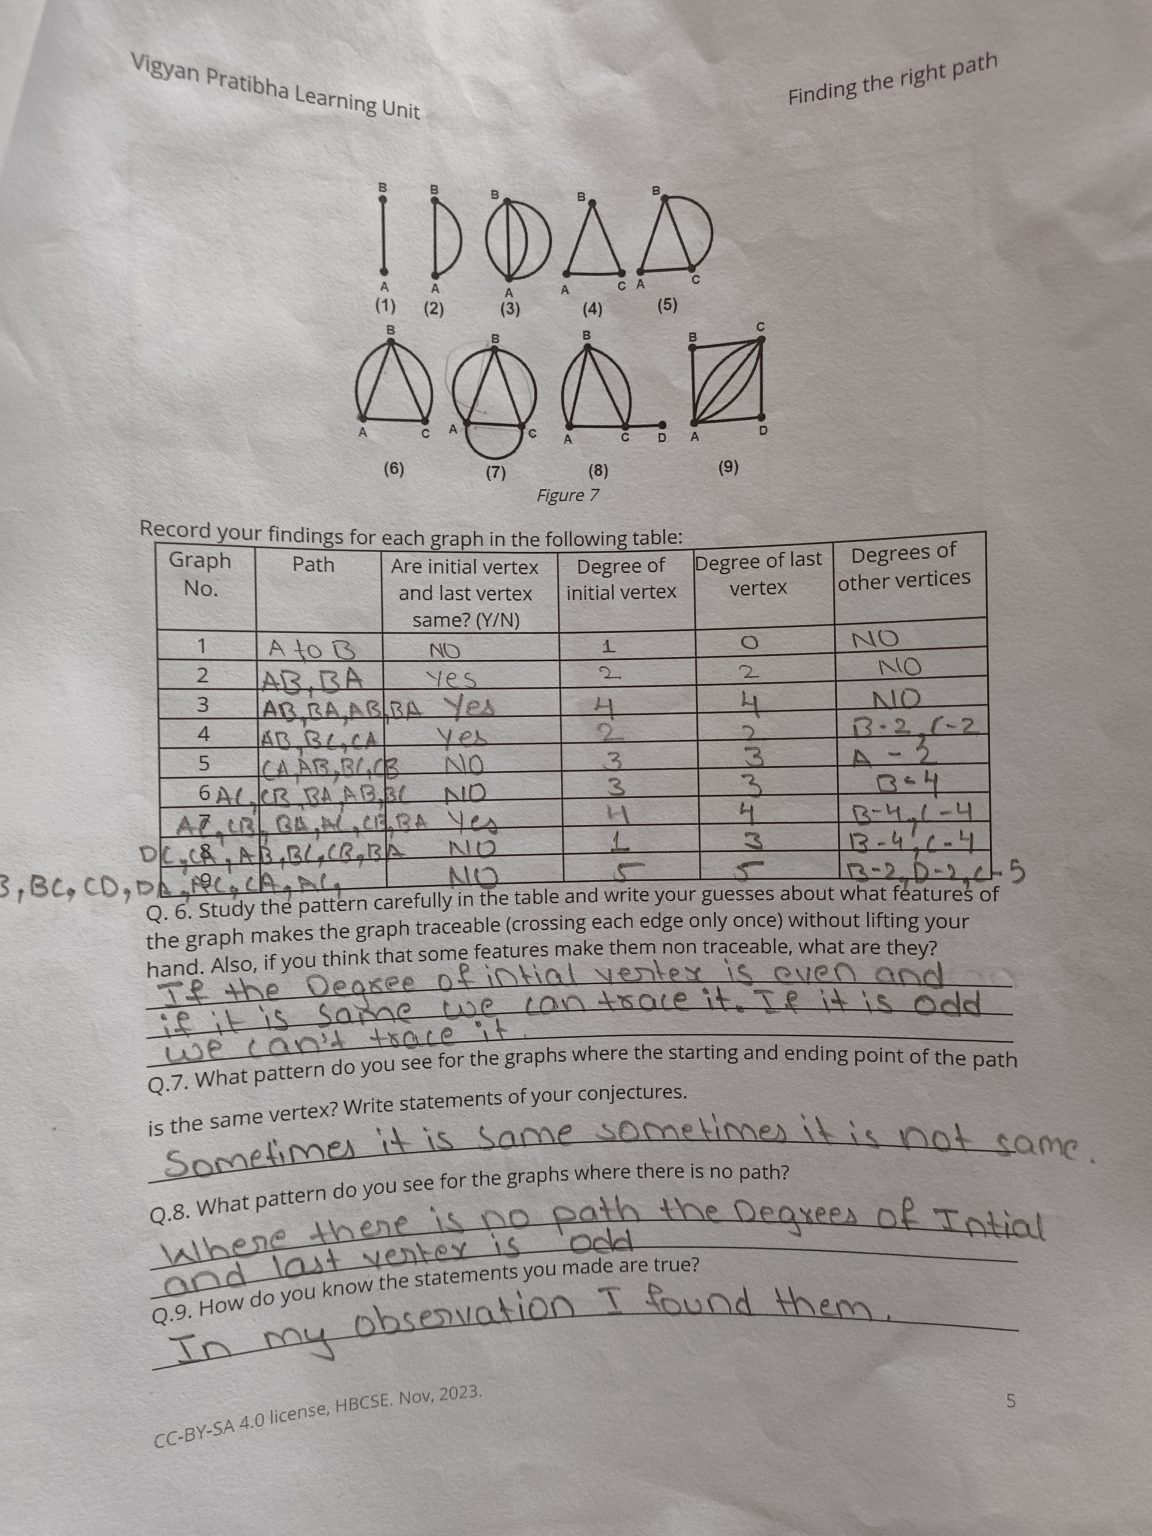 Vigyan Pratibha Learning Unit
Finding the right path
B B B B B
A A A A C A C
(1) (2) (3) (4) (5)
B B B B C
A C A C A C D A D
(6) (7) (8) (9)
Figure 7
Record your findings for each graph in the following table:
Graph No. Path Are initial vertex and last vertex same? (Y/N) Degree of initial vertex Degree of last vertex Degrees of other vertices
1 A to B NO 1 0 NO
2 AB, BA Yes 2 2 NO
3 AB, BA, AB, BA Yes 4 4 NO
4 AB, BC, CA Yes 2 2 B-2, C-2
5 CA, AB, BC, CB NO 3 3 A - 2
6 AC, CB, BA, AB, BC NO 3 3 B-4
7 AC, CB, BA, AC, CB, BA Yes 4 4 B-4, C-4
8 DC, CA, AB, BC, CB, BA NO 1 3 B-4, C-4
9 B, BC, CD, DA, AC, CA, AC, NO 5 5 B-2, D-2, C-5
Q. 6. Study the pattern carefully in the table and write your guesses about what features of
the graph makes the graph traceable (crossing each edge only once) without lifting your
hand. Also, if you think that some features make them non traceable, what are they?
If the Degree of intial vertex is even and
if it is same we can trace it. If it is odd
we can't trace it.
Q.7. What pattern do you see for the graphs where the starting and ending point of the path
is the same vertex? Write statements of your conjectures.
Sometimes it is same sometimes it is not same.
Q.8. What pattern do you see for the graphs where there is no path?
Where there is no path the Degrees of Intial
and last vertex is odd
Q.9. How do you know the statements you made are true?
In my observation I found them.
CC-BY-SA 4.0 license, HBCSE. Nov, 2023.
5